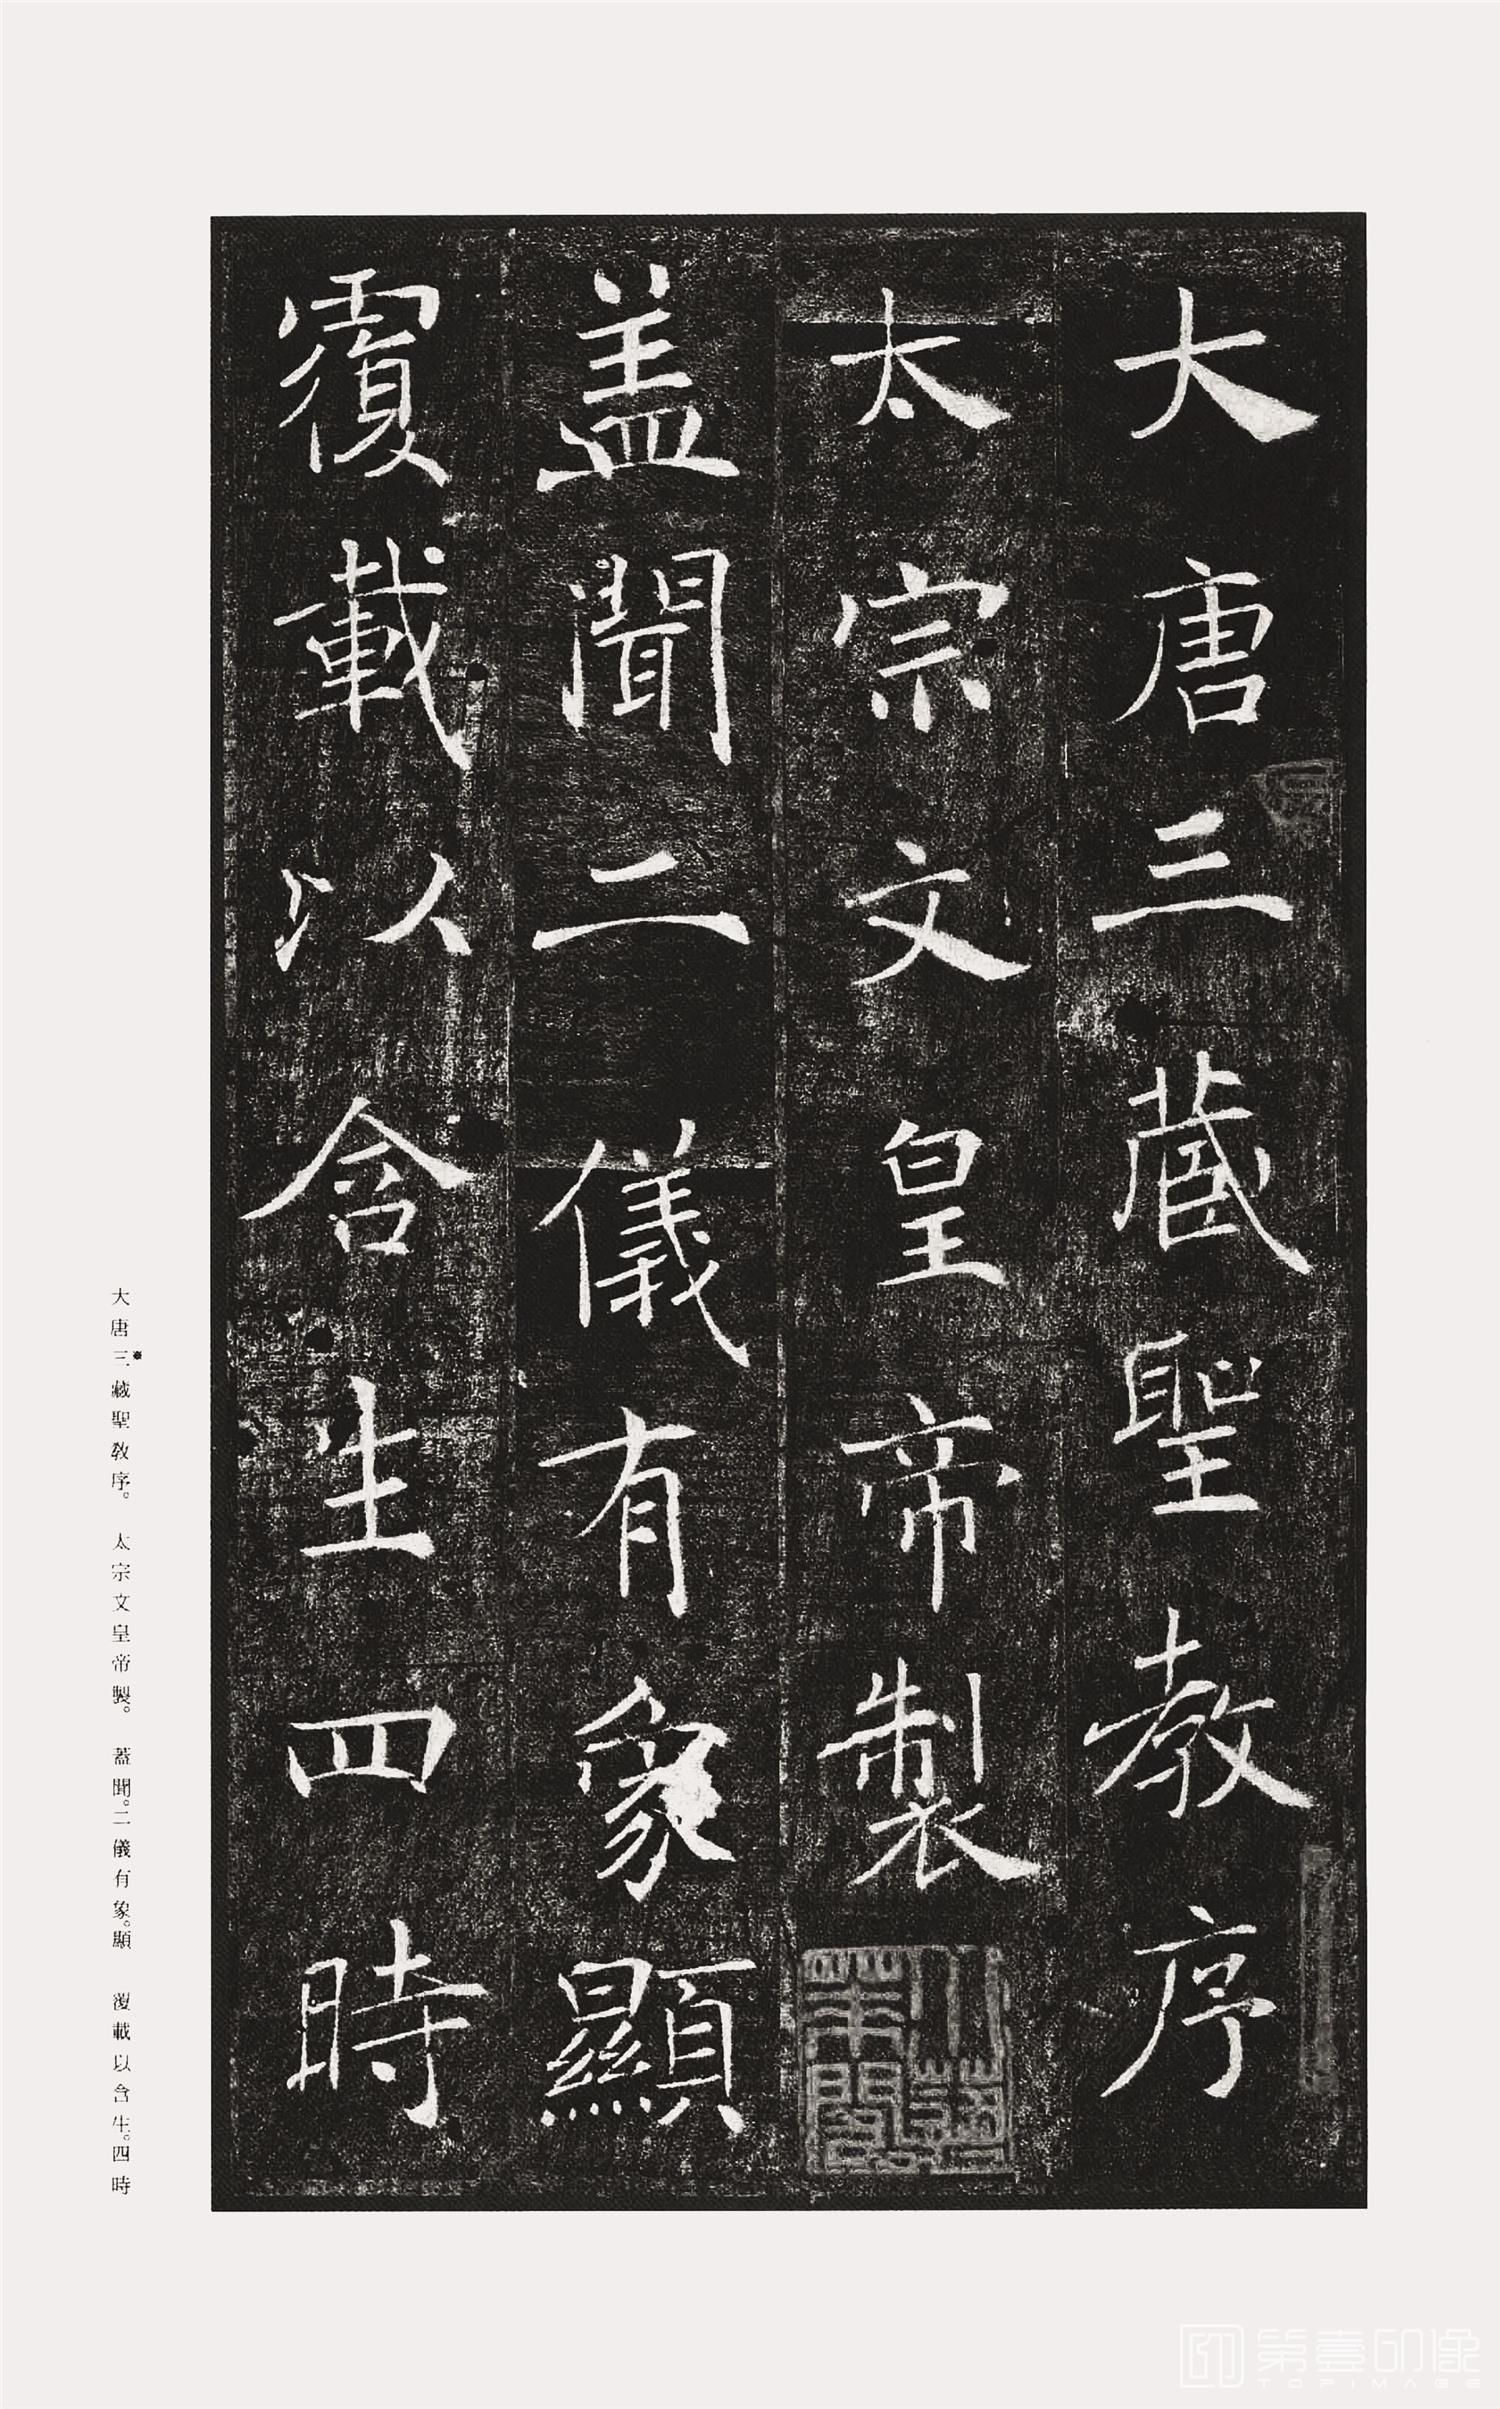 大唐三藏聖教序
太宗文皇帝製
盖聞二儀有象顯
覆載以含生四時
大唐三藏聖教序。 太宗文皇帝製。 蓋聞。二儀有象。顯 覆載以含生。四時
第壹印像
TOPIMAGE